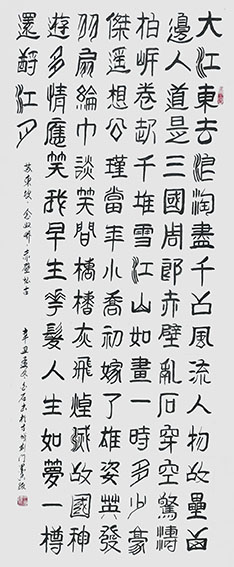 大江東去浪淘盡千古風流人物故壘西
邊人道是三國周郎赤壁亂石穿空驚濤
拍岸卷起千堆雪江山如畫一時多少豪
傑遥想公瑾當年小喬初嫁了雄姿英發
羽扇綸巾談笑間檣櫓灰飛煙滅故國神
遊多情應笑我早生華髮人生如夢一樽
還酹江月
蘇東坡念奴嬌赤壁懷古 辛丑